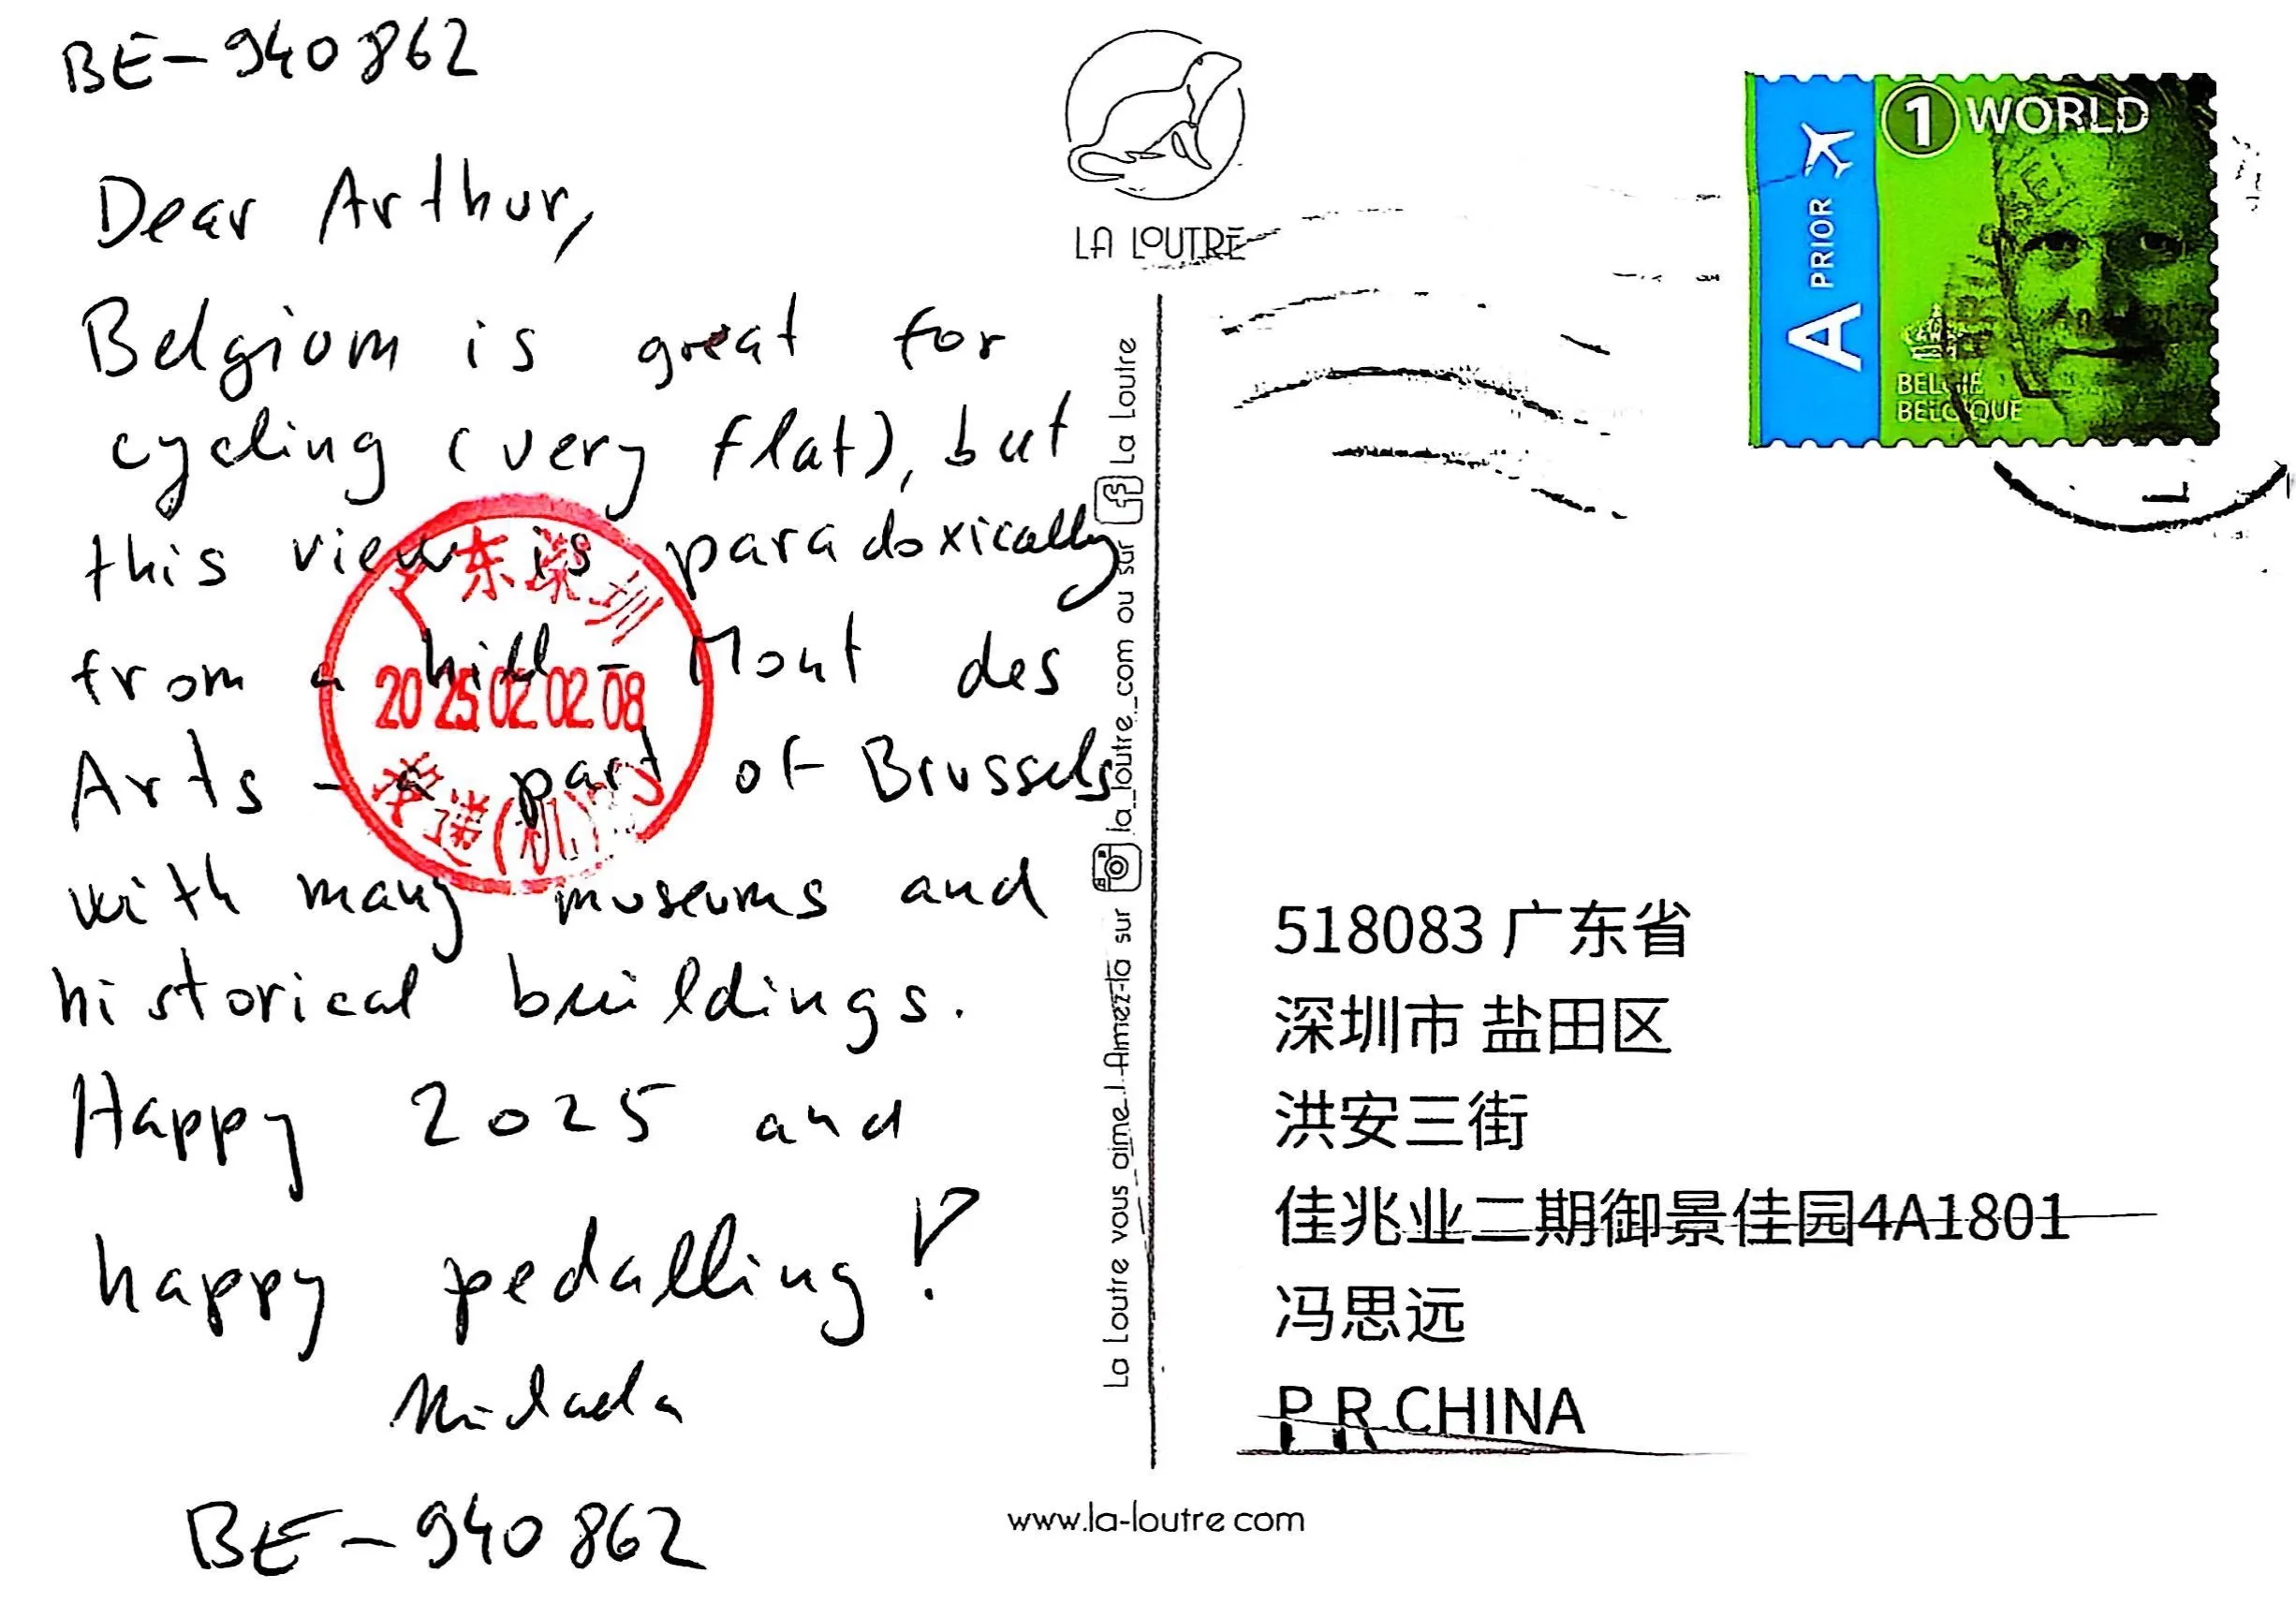 BE-940862
Dear Arthur,
Belgium is great for
cycling (very flat), but
this view is paradoxically
from a hill - Mont des
Arts - a part of Brussels
with many museums and
historical buildings.
Happy 2025 and
happy pedalling!
BE-940862
广东深圳
2025 02 02 08
(机)
LA LOUTRE
La Loutre vous aime ! Aimez-la sur la_loutre_com ou sur La Loutre
www.la-loutre.com
A PRIOR
1 WORLD
BELGIE
BELGIQUE
518083 广东省
深圳市 盐田区
洪安三街
佳兆业二期御景佳园4A1801
冯思远
P R CHINA